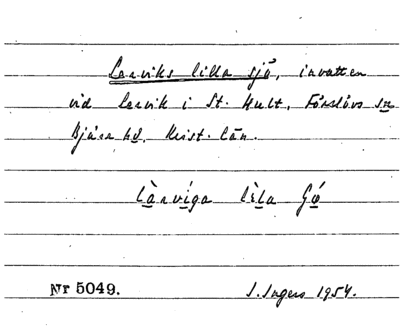 Lerviks lilla sjö, invatten
vid Lervik i St. Hult, Förslövs sn
Bjäre hd. Krist. län.
lärviga lila
Nr 5049. I. Ingers 1954.